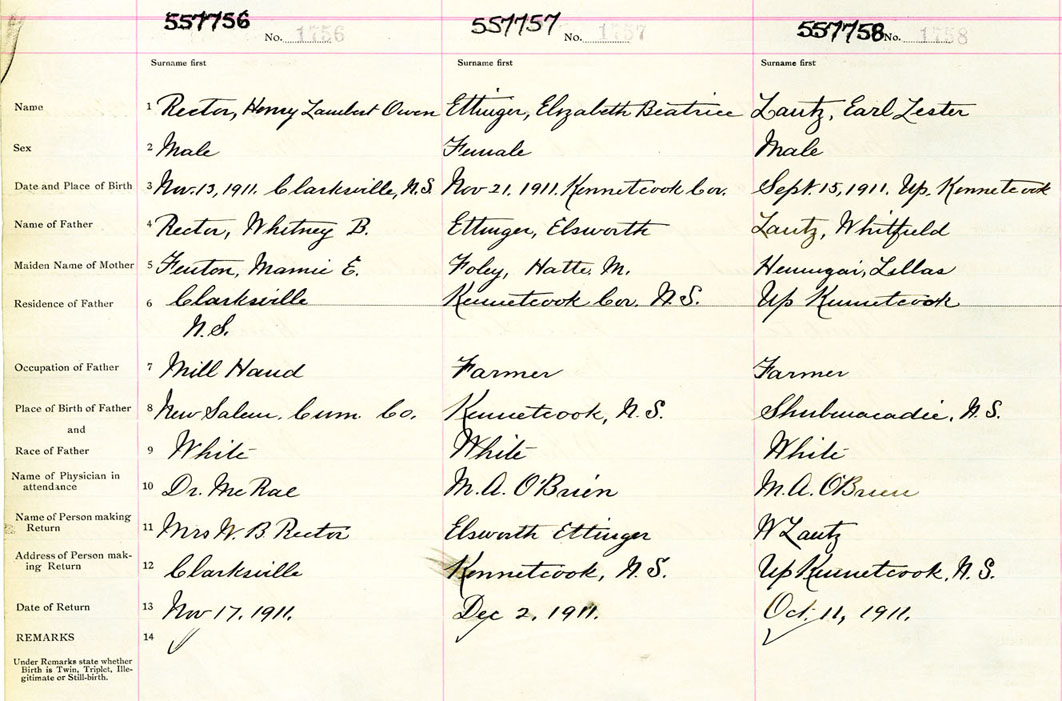 557756 No. 1756 557757 No. 1757 557758 No. 1758
Surname first Surname first Surname first
Name 1 Rector, Henry Lambert Owen Ettinger, Elizabeth Beatrice Lantz, Earl Lester
Sex 2 Male Female Male
Date and Place of Birth 3 Nov. 13, 1911. Clarksville, N.S. Nov 21, 1911. Kennetcook Cor. Sept. 15, 1911. Up. Kennetcook
Name of Father 4 Rector, Whitney B. Ettinger, Elsworth Lantz, Whitfield
Maiden Name of Mother 5 Fenton, Mamie E. Foley, Hatte. M. Lillas
Residence of Father 6 Clarksville Kennetcook Cor. N.S. Up Kennetcook
N.S.
Occupation of Father 7 Mill Hand Farmer Farmer
Place of Birth of Father 8 New Salem. Cum. Co. Kennetcook, N.S. Shubenacadie, N.S.
and
Race of Father 9 White White White
Name of Physician in
attendance 10 Dr. McRae M.A. O'Brien M.A. O'Brien
Name of Person making
Return 11 Mrs W. B Rector Elsworth Ettinger W Lantz
Address of Person mak-
ing Return 12 Clarksville Kennetcook, N.S. Up Kennetcook, N.S.
Date of Return 13 Nov 17, 1911. Dec 2, 1911. Oct. 11, 1911.
REMARKS 14
Under Remarks state whether
Birth is Twin, Triplet, Ille-
gitimate or Still-birth.